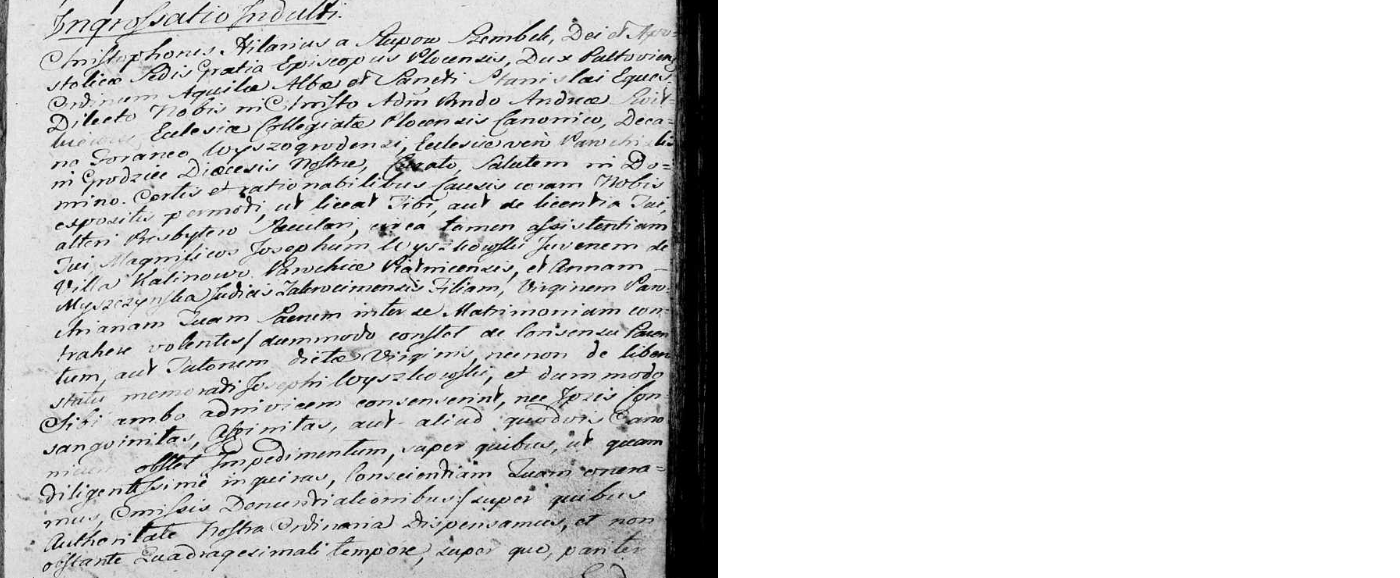 Ingrossatio Indulti.
Christophorus Hilarius a Słupow Szembek, Dei et Apo=
stolicæ Sedis Gratia Episcopus Plocensis, Dux Pultovien:
Ordinum Aquilæ Albæ et Sancti Stanislai Eques.
Dilecto Nobis in Christo Adm Rndo Andreæ
Eclesiæ Collegiatæ Plocensis Canonico, Deca=
no Foraneo Wyszogrodensi, Eclesiæ verò Parochialis
in Grodziec Diœcesis Nostræ, Curato, Salutem in Do=
mino. Certis et rationabilibus Causis coram Nobis
expositis permoti, ut liceat Tibi, aut de licentia Tui,
alteri Presbytero Sæculari, circa tamen assistentiam
Tui Magnificos Josephum Wyszkowski Juvenem de
Villa Kalinowo Parochiæ Piatnicensis, et Annam
Myszczynska Judicis Zakrocimensis Filiam, Virginem Paro=
chianam Tuam Paenem inter se Matrimonium con=
trahere volentes/ dummodo constet de Consensu Paren
tum, aut Tutorum dictæ Virginis, necnon de liber
statu memorati Josephi Wyszkowski, et dummodo
Sibi ambo adinvicem consenserint, nec Ipsis Con
sanguinitas, Affinitas, aut aliud quodvis Cano
nicum obstet Impedimentum, super quibus, ut quam
diligentissimè inquiras, Conscientiam Tuam onera=
mus, Omissis Denuntiationibus/ super quibus
Authoritate Nostra Ordinaria dispensamus, et non
obstante Quadragesimali tempore, super quo, pariter